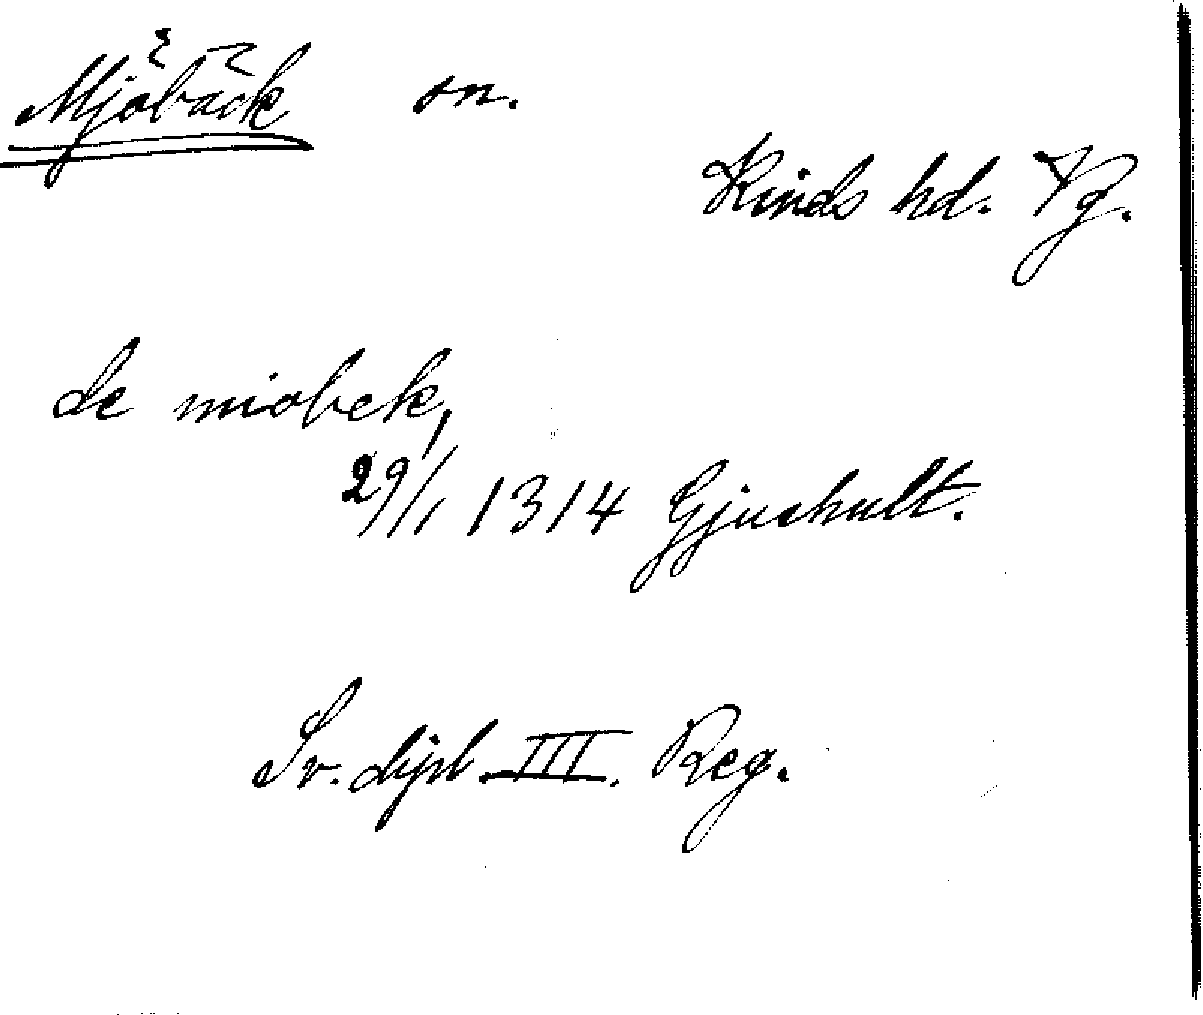 Mjöbäck sn.
Kinds hd. Vg.
de miobek,
29/1 1314 Gjushult.
Sv. dipl. III. Reg.